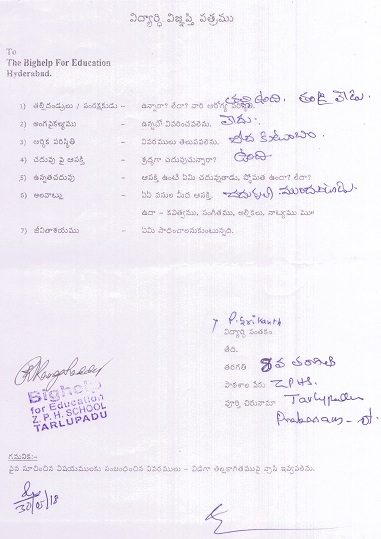 విద్యార్థి విజ్ఞప్తి పత్రము
To
The Bighelp For Education
Hyderabad.
1) తల్లిదండ్రులు / సంరక్షకుడు – ఉన్నారా? లేదా? వారి ఆరోగ్య తల్లి ఉంది. తండ్రి లేడు.
2) అంగవైకల్యము – ఉన్నచో వివరించవలెను. లేదు.
3) ఆర్థిక పరిస్థితి – వివరములు తెలుపవలెను. పేద కుటుంబం
4) చదువు పై ఆసక్తి – శ్రద్ధగా చదువుచున్నారా? ఉంది
5) ఉన్నతచదువు – ఆసక్తి ఉంటే ఏమి చదువుతాడు, స్తోమత ఉందా? లేదా?
6) అలవాట్లు – ఏఏ పనుల మీద ఆసక్తి.
ఉదా – కవిత్వము, సంగీతము, అల్లికలు, నాట్యము మొ॥
7) జీవితాశయము – ఏమి సాధించాలనుకుంటున్నది.
P. Srikanth
విద్యార్థి సంతకం
తేది.
తరగతి 8వ తరగతి
పాఠశాల పేరు Z.P.H.S.
పూర్తి చిరునామా Tarlupadu
Prakasam - Dt.
Bighelp
for Education
Z. P. H. SCHOOL
TARLUPADU
గమనిక:-
పైన సూచించిన విషయములకు సంబంధించిన వివరములు – విడిగా తెల్లకాగితముపై వ్రాసి ఇవ్వవలెను.